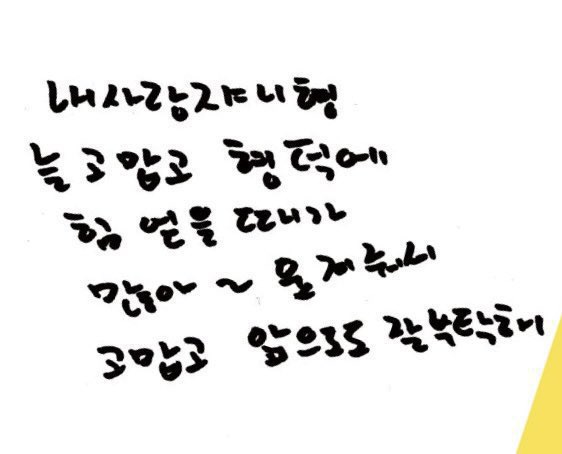 내사랑쟈니형
늘 고맙고 형덕에
힘 얻을 때가
많아 ~ 올겨줘서
고맙고 앞으로도 잘부탁해